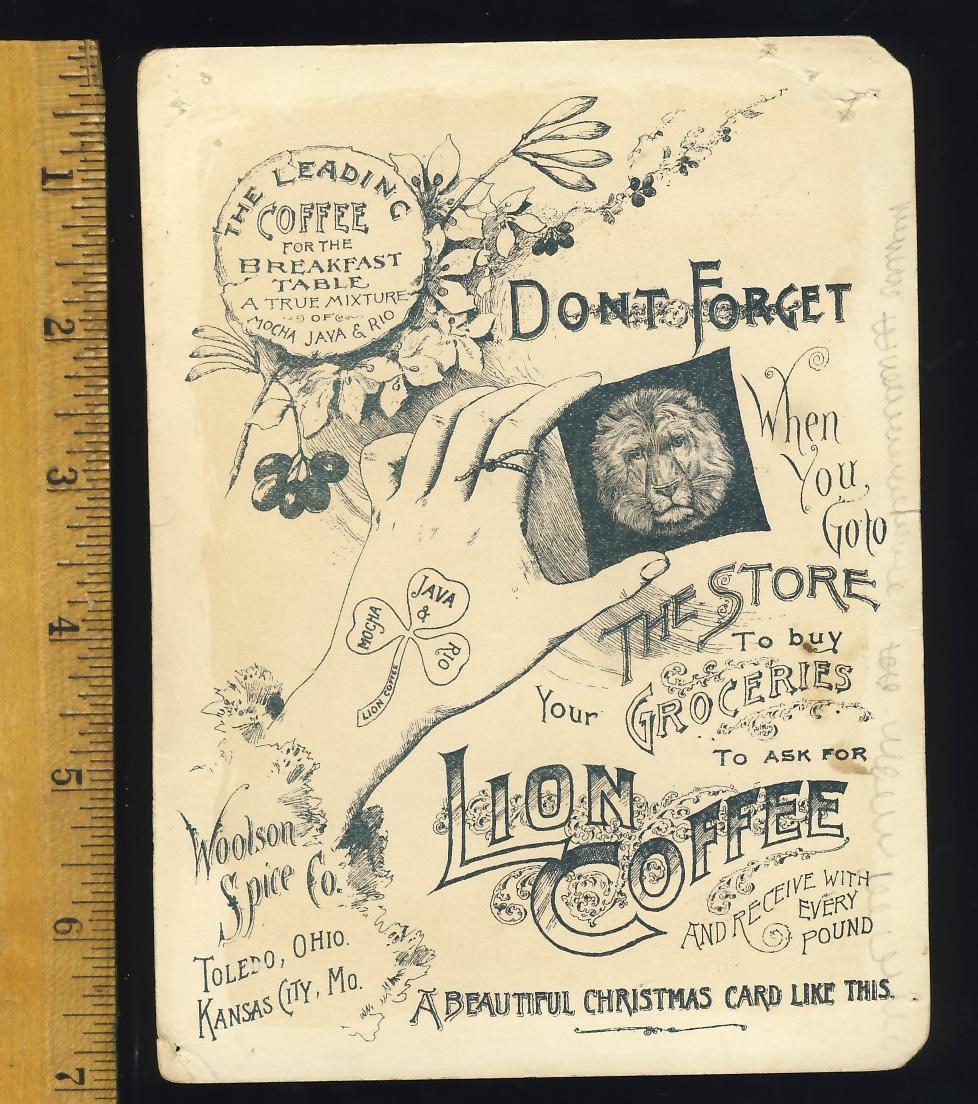 THE LEADING
COFFEE
FOR THE
BREAKFAST
TABLE
A TRUE MIXTURE
OF
MOCHA JAVA & RIO
DONT FORGET
When
You
Goto
THE STORE
To buy
Your GROCERIES
To ask for
LION
COFFEE
AND RECEIVE WITH
EVERY
POUND
A BEAUTIFUL CHRISTMAS CARD LIKE THIS.
MOCHA
JAVA
&
RIO
LION COFFEE
Woolson
Spice Co.
TOLEDO, OHIO.
KANSAS CITY, MO.
1
2
3
4
5
6
7